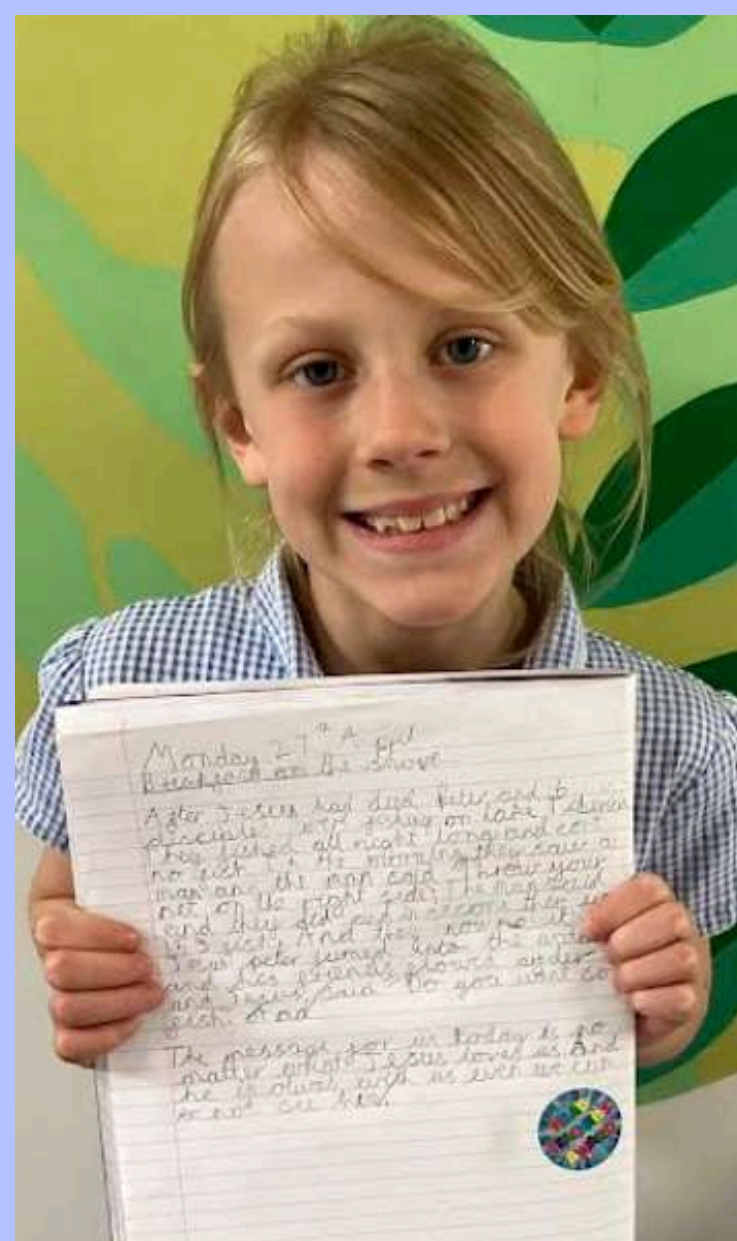 Monday 27th April
Breakfast on the shore
After Jesus had died Peter and 6
disciples were fishing on lake
They fished all night long and
no fish In the morning they saw a
man and the man said Throw your
net of the right side The man said
and they did and
153 fish And they it
Jesus peter jumed into the
and his friends
and Jesus said Do you want
fish
The message for us today is no
matter what Jesus loves us And
he is with us even we
not see